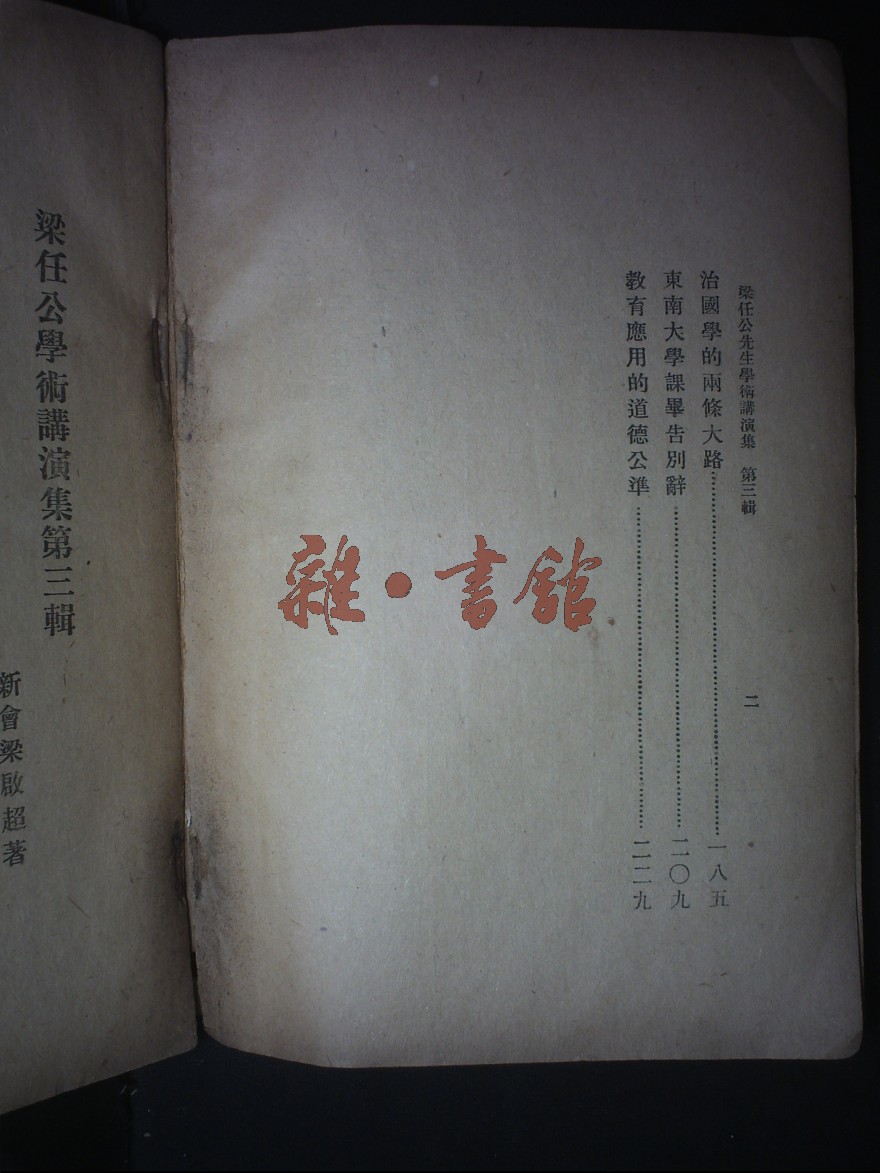 梁任公先生學術講演集 第三輯
二
治國學的兩條大路…一八五
東南大學課畢告別辭…二〇九
教育應用的道德公準…二二九
雜·書館
梁任公學術講演集第三輯
新會梁啟超著